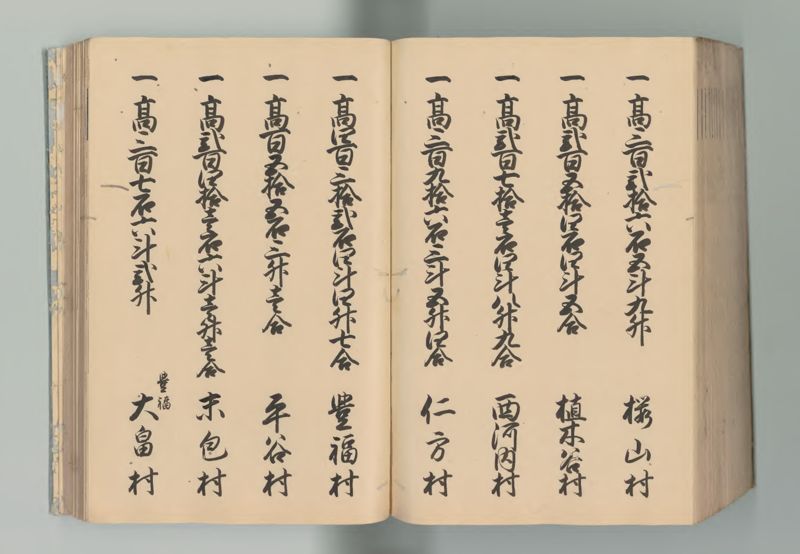 一 高三百弐拾六石五斗九升 桜山村
一 高弐百五拾四石四斗五合 植木谷村
一 高弐百七拾壱石四斗八升九合 西河内村
一 高三百九拾六石三斗五升四合 仁方村
一 高四百三拾弐石四斗四升七合 豊福村
一 高百五拾五石三升壱合 平谷村
一 高弐百四拾壱石六斗壱升壱合 末包村
一 高三百七石六斗弐升 豊福大畠村